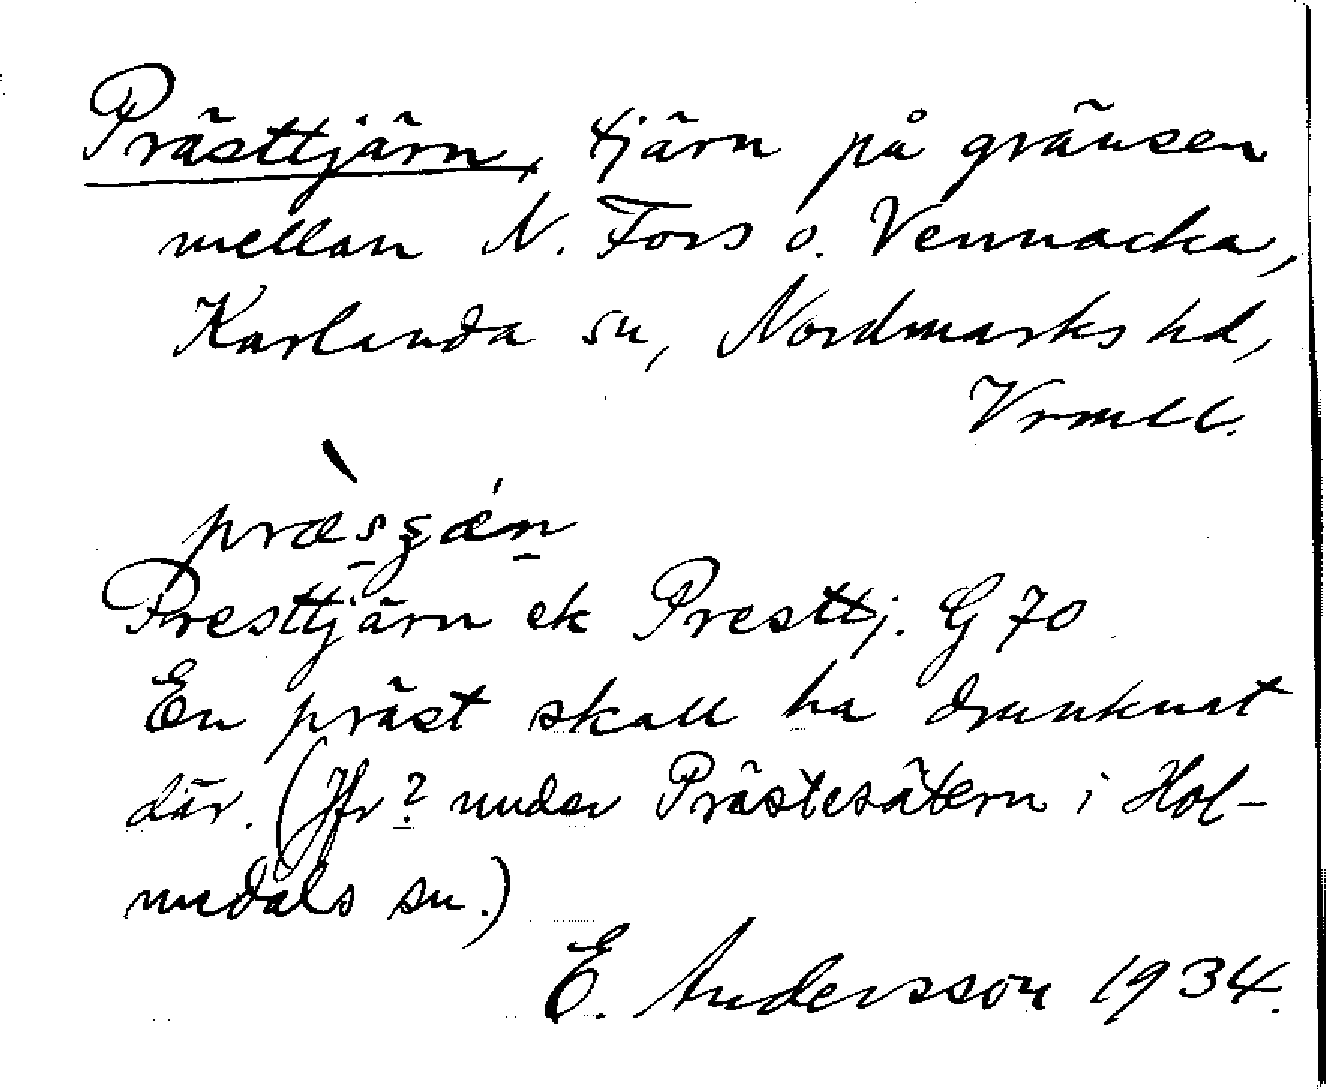 Prästtjärn, tjärn på gränsen
mellan N. Fors o. Vennacka,
Karlanda sn, Nordmarks hd,
Vrmll.
Presttjärn ek Presttj. G 70
En präst skall ha drunknat
där. (Jfr? under Prästesätern i Hol-
medals sn.)
E. Andersson 1934.